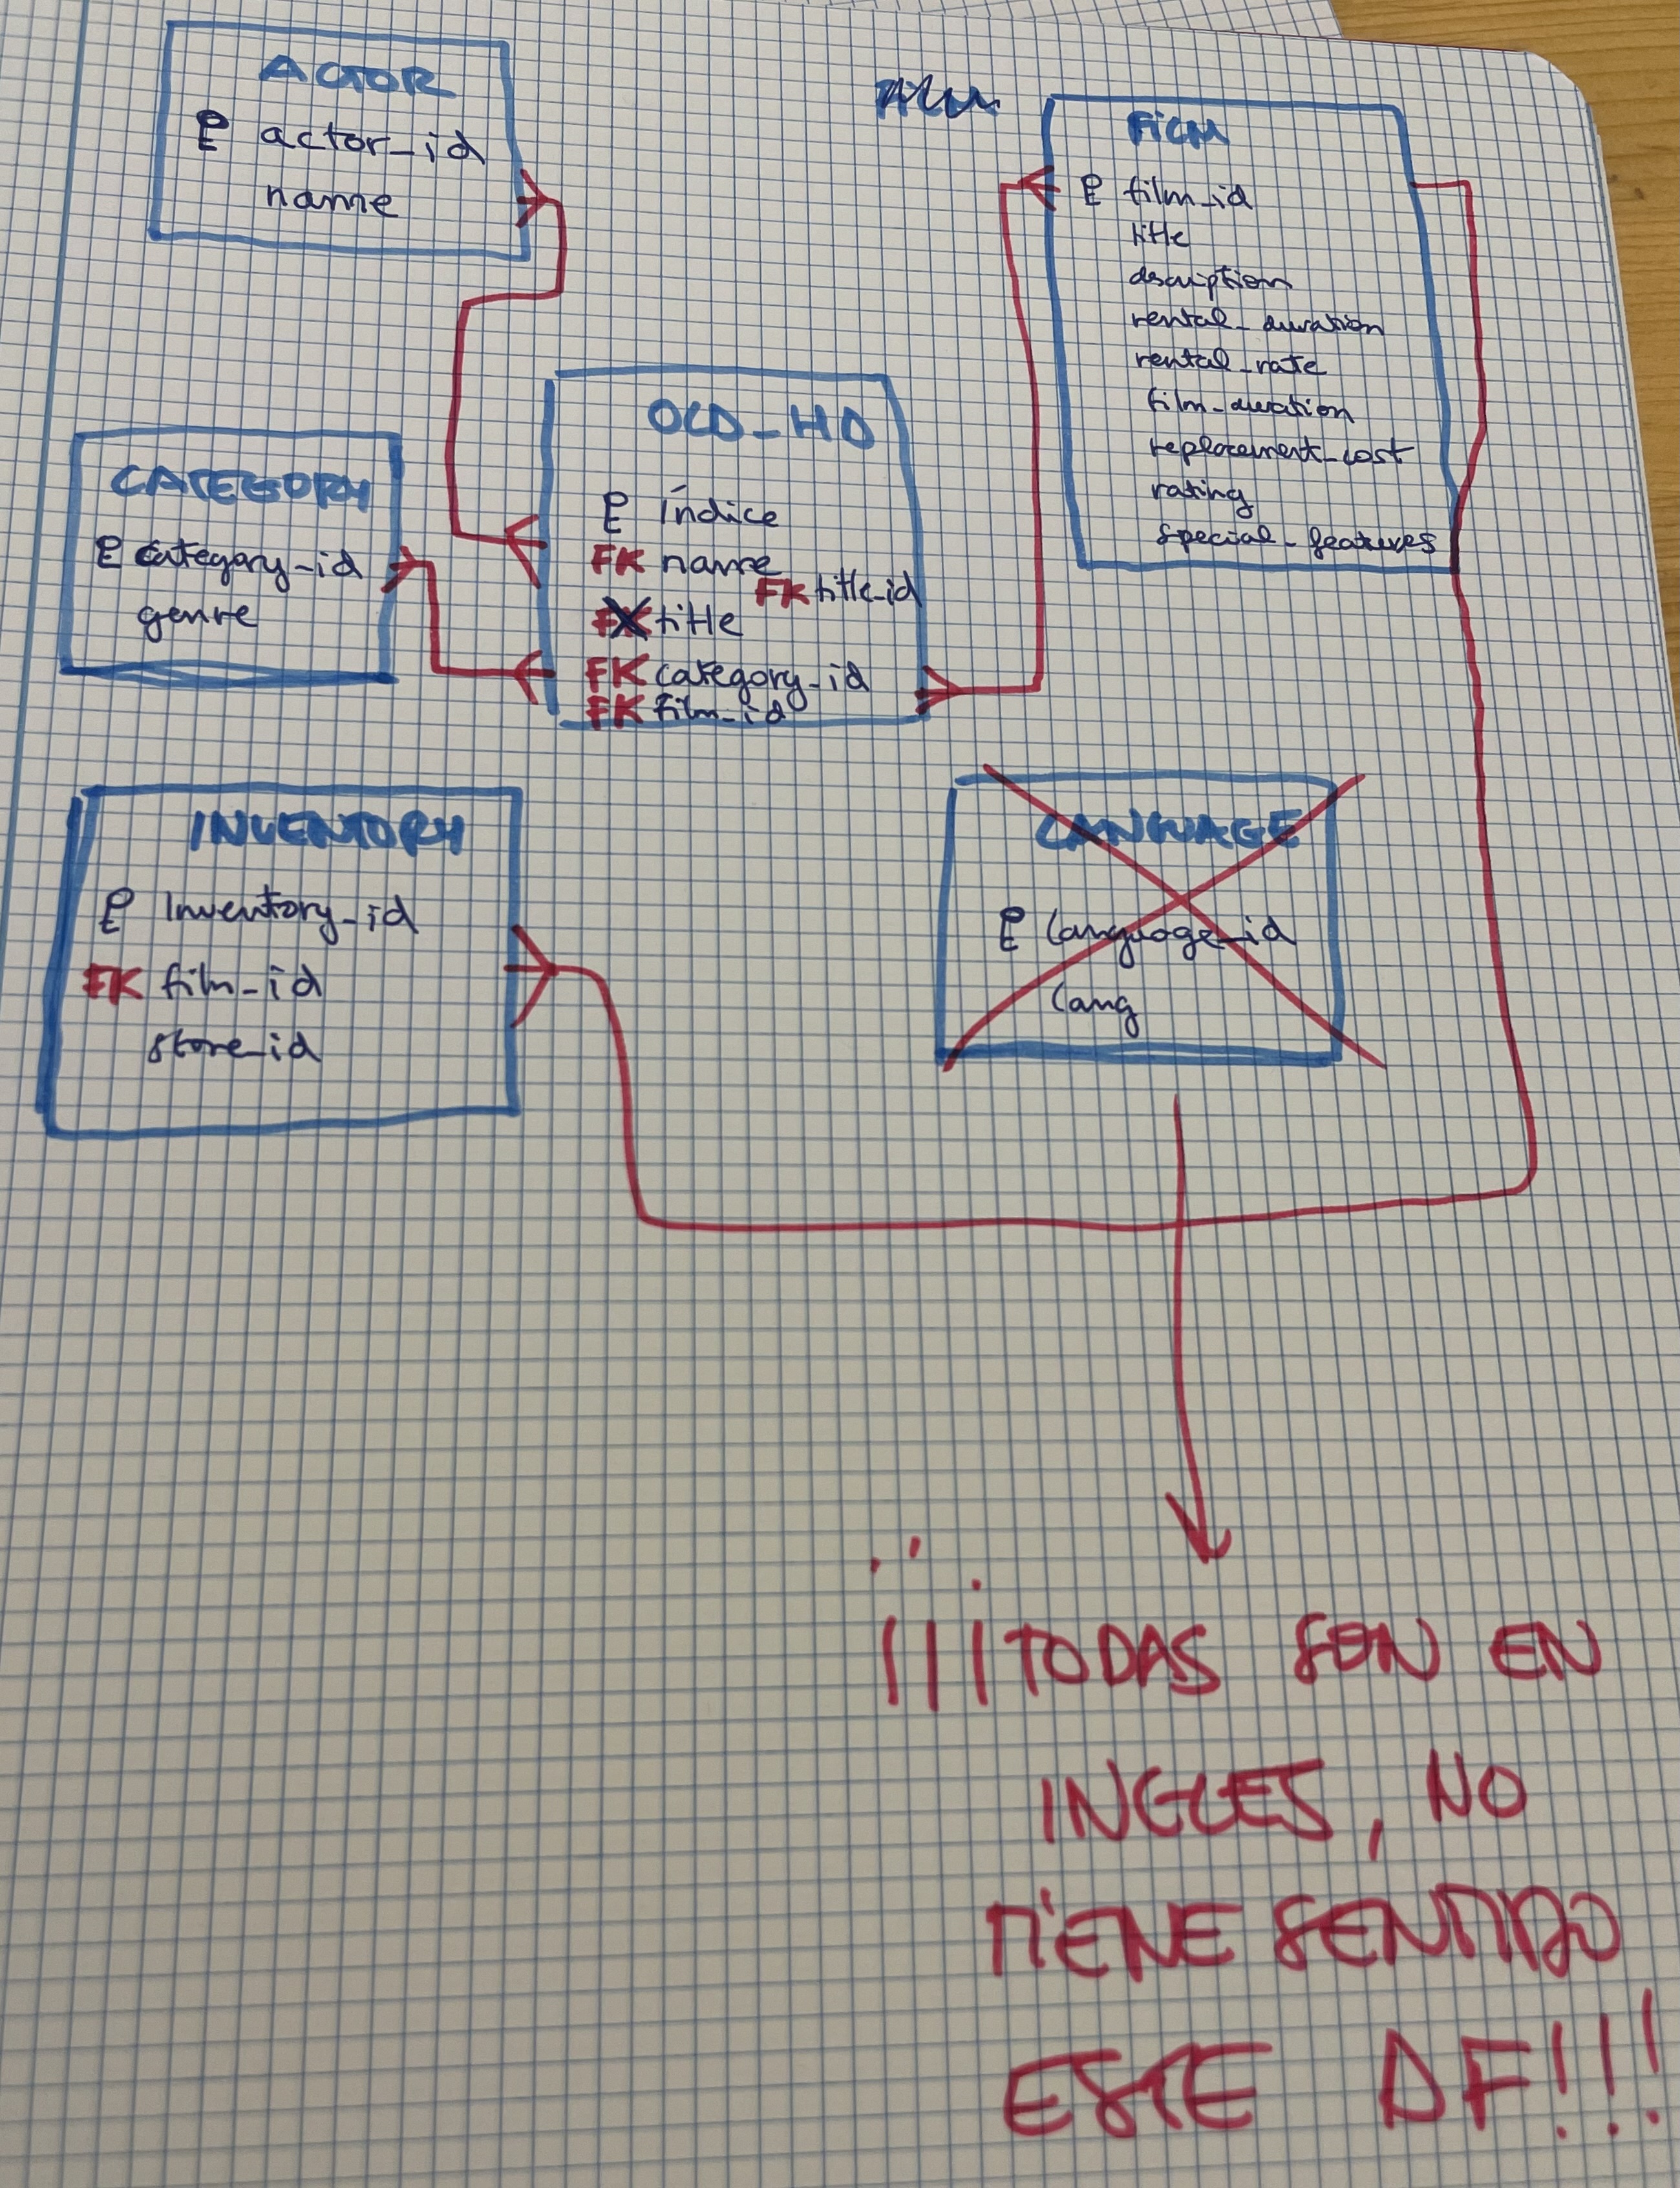 ACTOR
P actor_id
name
FILM
P film_id
title
description
rental_duration
rental_rate
film_duration
replacement_cost
rating
special_features
CATEGORY
P category_id
genre
OLD_HD
P índice
FK name
FK title_id
FK title
FK category_id
FK film_id
INVENTORY
P Inventory_id
FK film_id
store_id
LANGUAGE
P language_id
lang
¡¡¡TODAS SON EN
INGLES, NO
TIENE SENTIDO
ESTE DF!!!